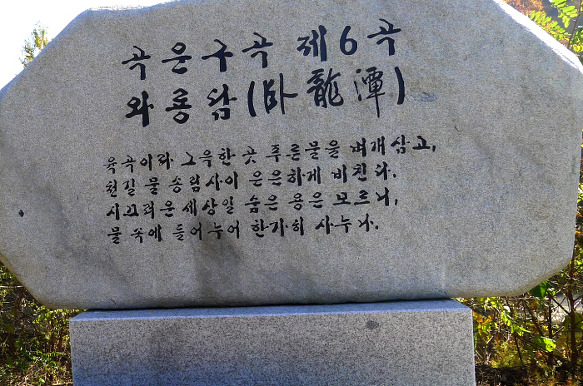 곡운구곡 제6곡
와룡담(臥龍潭)
육곡이라 그윽한 곳 푸른물을 벼개삼고,
천길 물 송림사이 은은하게 비친다.
시끄러운세상일 숨은 용은 모르니,
물 속에 들어누어 한가히 사누나.